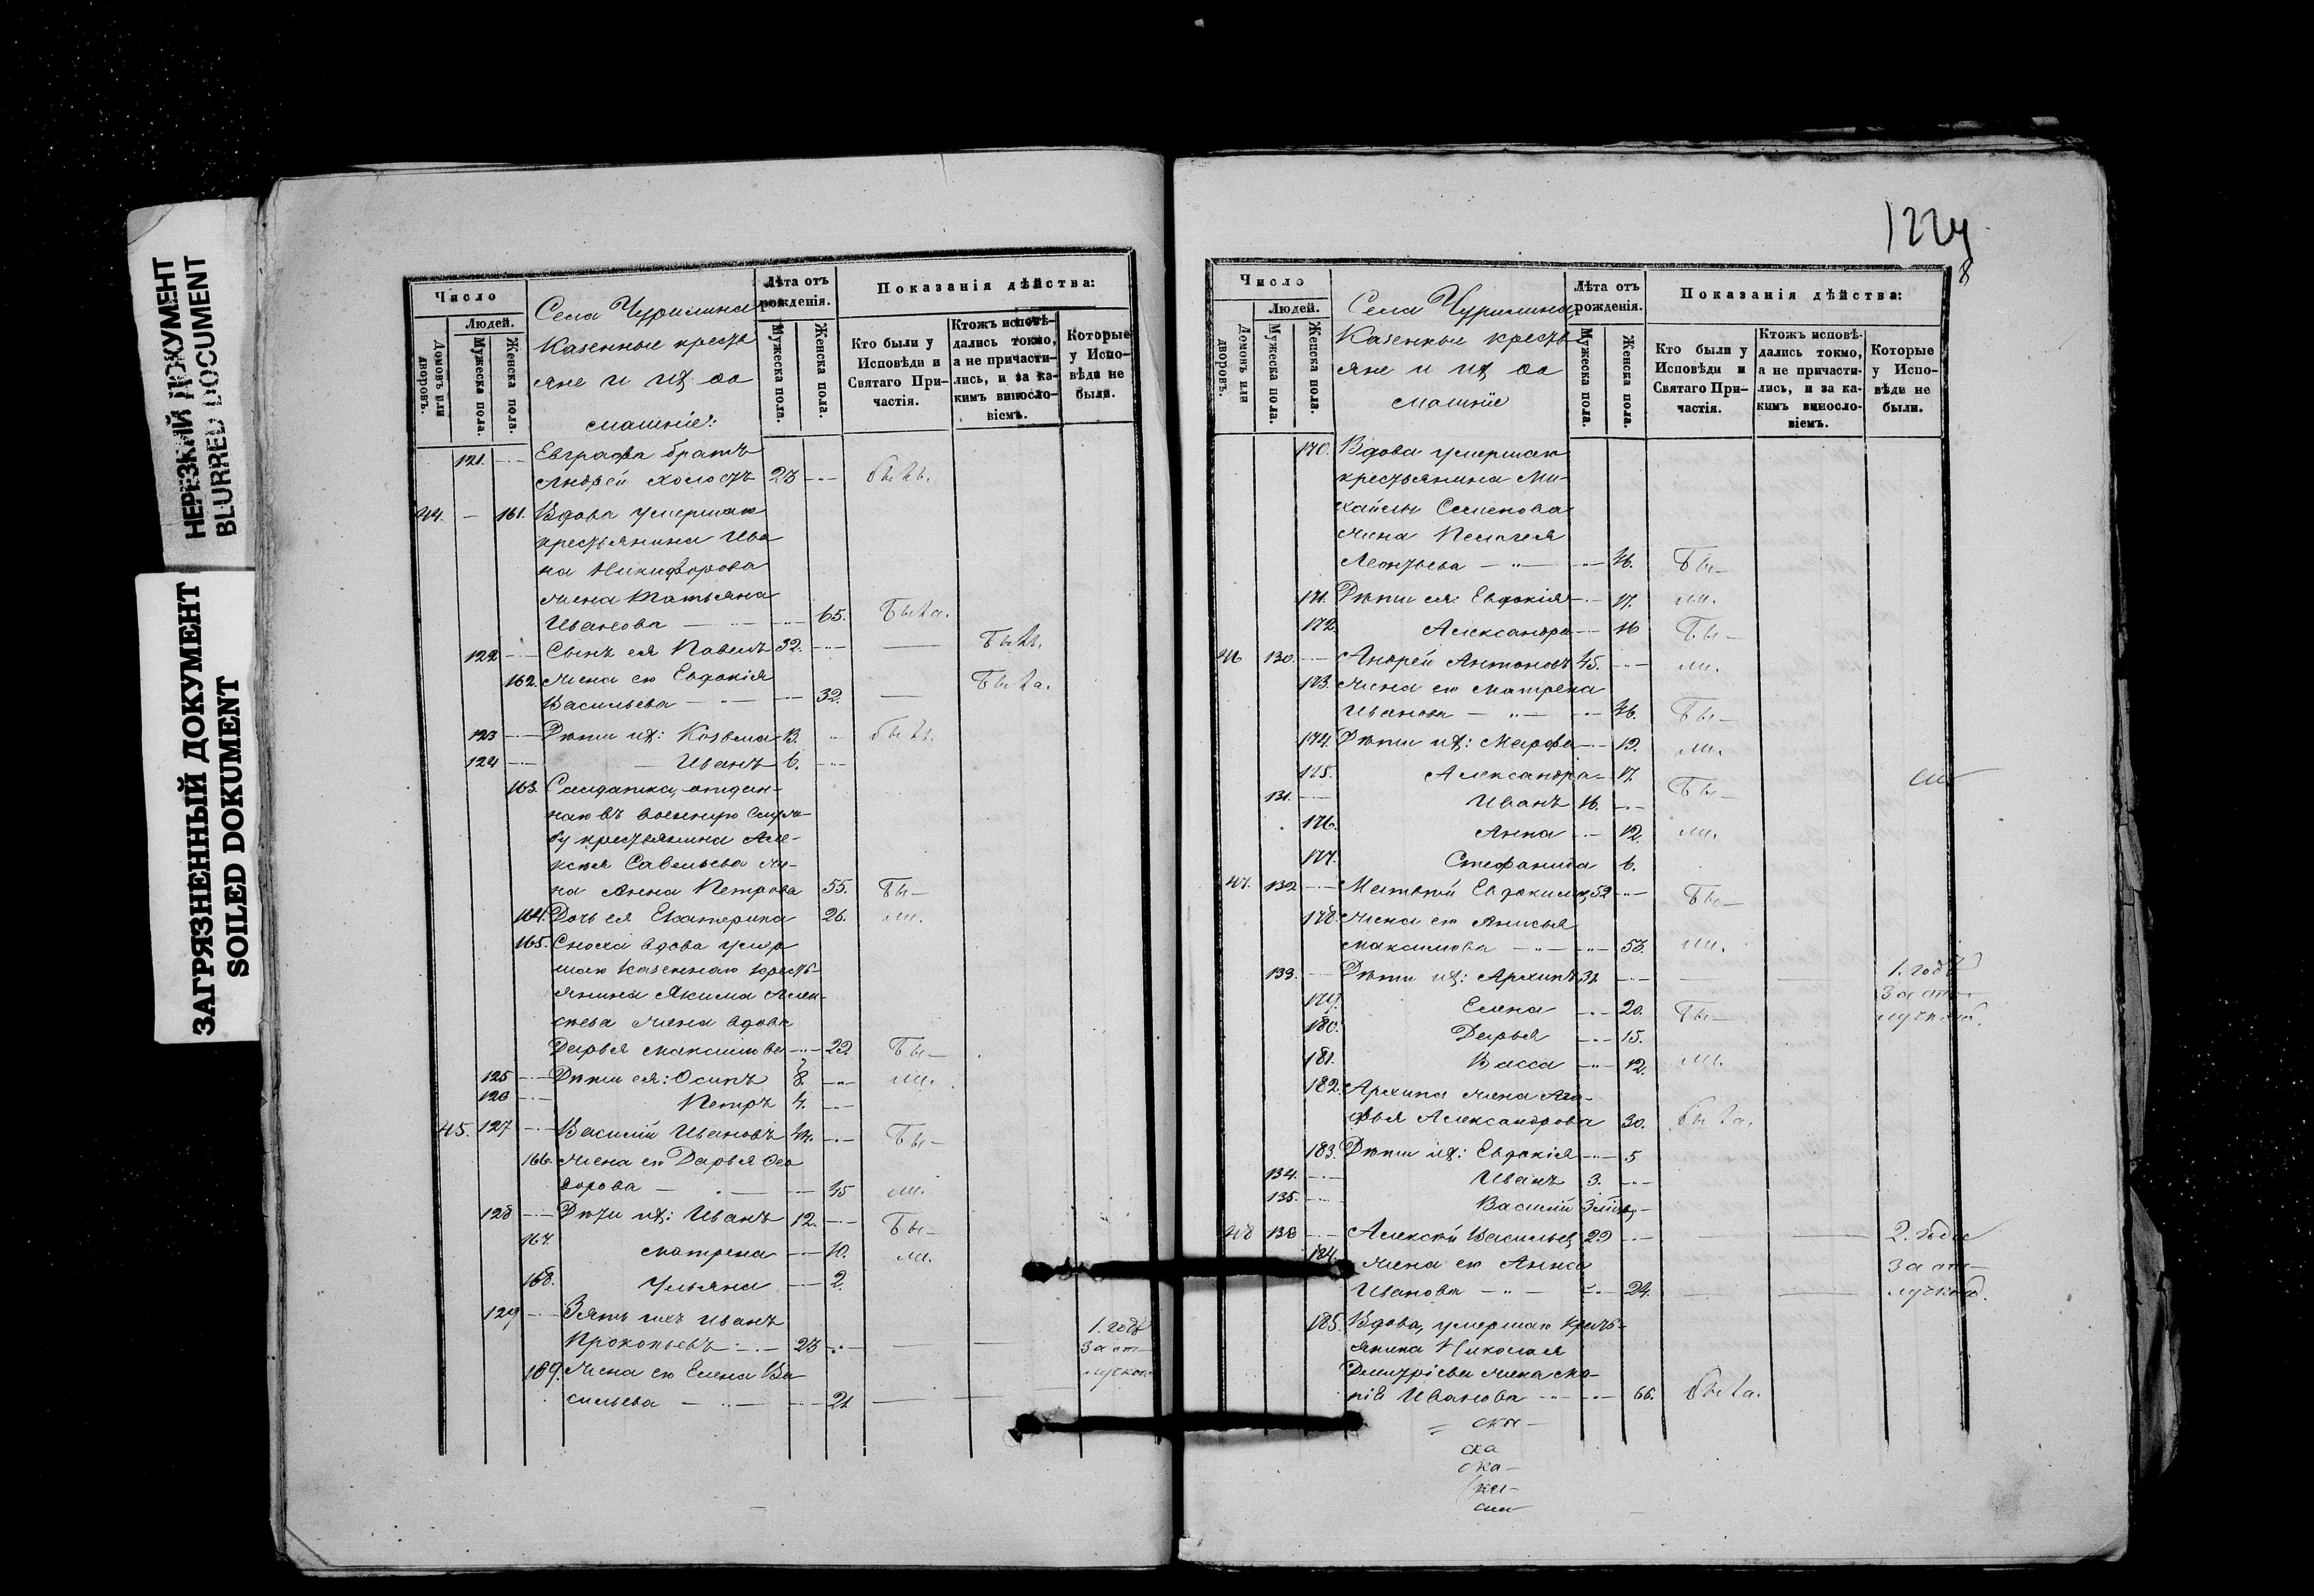 НЕРЕЗКИЙ ДОКУМЕНТ
BLURRED DOCUMENT
ЗАГРЯЗНЕННЫЙ ДОКУМЕНТ
SOILED DOKUMENT
Число
Людей.
Домовъ или дворовъ.
Мужеска пола.
Женска пола.
Села Чурилина
Казенные кресть
яне и их до
машніе:
Лѣта отъ рожденія.
Мужеска пола.
Женска пола.
Показанія дѣйства:
Кто были у Исповѣди и Святаго Причастія.
Ктожъ исповѣдались токмо, а не причастились, и за какимъ винословіемъ.
Которые у Исповѣди не были.
121. Евграфа братъ
Андрей холостъ 23 былъ.
44. 161. Вдова умершаго
крестьянина Ива
на Никифорова
жена Татьяна
Иванова 65. Была.
122 Сынъ ея Павелъ 32. Былъ.
162. Жена его Евдокія
Васильева 32. Была.
123 Дѣти их: Козьма 13. былъ.
124 Иванъ 6.
163. Солдатка, отдан-
наго въ военную служ-
бу крестьянина Але-
ксѣя Савельева же-
на Анна Петрова 55. Бы-
164. Дочь ея Екатерина 26. ли.
165. Сноха вдова умер
шаго казеннаго кресть-
янина Якима Алек-
сѣева жена вдова
Дарья Максимова 29. Бы-
125 Дѣти ея: Осипъ 8. ли.
126 Петръ 4.
45. 127 Василій Ивановъ 44. Бы-
166. Жена его Дарья Ѳео
дорова 45 ли.
128 Дѣти их: Иванъ 12. Бы-
167. Матрена 10. ли.
168. Ульяна 2.
129 Зять ихъ Иванъ
Прокопьевъ 23 1. годъ
за от-
лучкою
169. Жена его Елена Ва
сильева 21.
122ч
8
Число
Людей.
Домовъ или дворовъ.
Мужеска пола.
Женска пола.
Села Чурилина
Казенные кресть
яне и их до
машніе
Лѣта отъ рожденія.
Мужеска пола.
Женска пола.
Показанія дѣйства:
Кто были у Исповѣди и Святаго Причастія.
Ктожъ исповѣдались токмо, а не причастились, и за какимъ винословіемъ.
Которые у Исповѣди не были.
170. Вдова умершаго
крестьянина Ми-
хайлы Семенова
жена Пелагея
Леонтьева 46. Бы-
171. Дѣти ея: Евдокія 17. ли.
172. Александра 16 Бы-
46 130. Андрей Антоновъ 45. ли.
173. Жена его Матрена
Иванова 46. Бы-
174. Дѣти их: Марфа 19. ли.
175. Александра 17.
131. Иванъ 16. Бы-
176. Анна 12. ли.
177. Стефанида 6.
47. 132 Матвѣй Евдокимовъ 52 Бы-
178. Жена его Анисья
Максимова 53. ли.
133. Дѣти их: Архипъ 31. 1. годъ
за от-
лучкой.
179. Елена 20. Бы-
180. Дарья 15.
181. Васса 12. ли.
182. Архипа жена Ага-
фья Александрова 30. была.
183. Дѣти их: Евдокія 5
134. Иванъ 3.
135. Василій
48 136 Алексѣй Васильевъ 29 2. года
184. Жена его Анна за от-
Иванова 24. лучкой.
185. Вдова, умершаго кресть-
янина Николая
Дмитріева жена Ма-
рія Иванова 66. была.